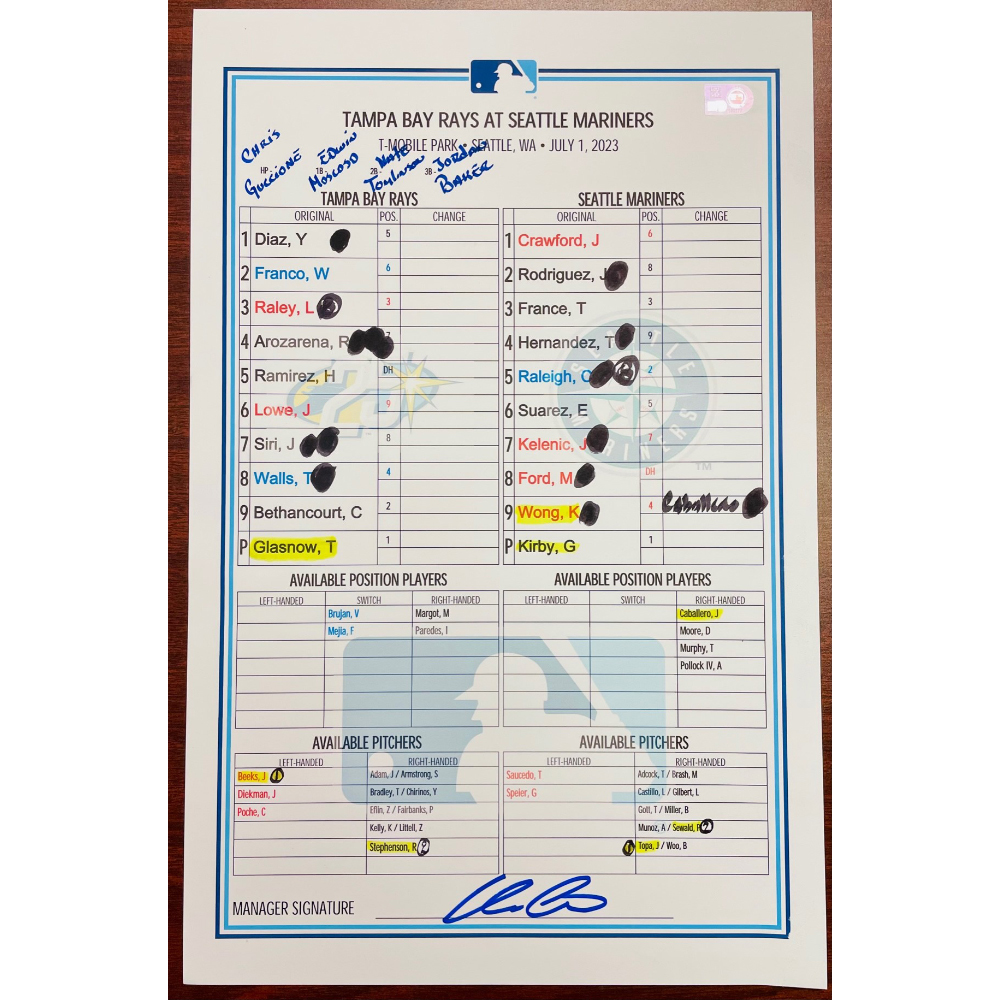 TAMPA BAY RAYS AT SEATTLE MARINERS
T-MOBILE PARK • SEATTLE, WA • JULY 1, 2023
HP - CHRIS GUCCIONE 1B - EDWIN MOSCOSO 2B - NATE Tomlinson 3B - JORDAN BAKER
TAMPA BAY RAYS SEATTLE MARINERS
ORIGINAL POS. CHANGE ORIGINAL POS. CHANGE
1 Diaz, Y 5 1 Crawford, J 6
2 Franco, W 6 2 Rodriguez, J 8
3 Raley, L 3 3 France, T 3
4 Arozarena, R 7 4 Hernandez, T 9
5 Ramirez, H DH 5 Raleigh, C 2
6 Lowe, J 9 6 Suarez, E 5
7 Siri, J 8 7 Kelenic, J 7
8 Walls, T 4 8 Ford, M DH
9 Bethancourt, C 2 9 Wong, K 4 Caballero
P Glasnow, T 1 P Kirby, G 1
AVAILABLE POSITION PLAYERS AVAILABLE POSITION PLAYERS
LEFT-HANDED SWITCH RIGHT-HANDED LEFT-HANDED SWITCH RIGHT-HANDED
Brujan, V Margot, M Caballero, J
Mejia, F Paredes, I Moore, D
Murphy, T
Pollock IV, A
AVAILABLE PITCHERS AVAILABLE PITCHERS
LEFT-HANDED RIGHT-HANDED LEFT-HANDED RIGHT-HANDED
Beeks, J 1 Adam, J / Armstrong, S Saucedo, T Adcock, T / Brash, M
Diekman, J Bradley, T / Chirinos, Y Speier, G Castillo, L / Gilbert, L
Poche, C Eflin, Z / Fairbanks, P Gott, T / Miller, B
Kelly, K / Littell, Z Munoz, A / Sewald, P 2
Stephenson, R 2 1 Topa, J / Woo, B
MANAGER SIGNATURE
SEATTLE MARINERS
TM